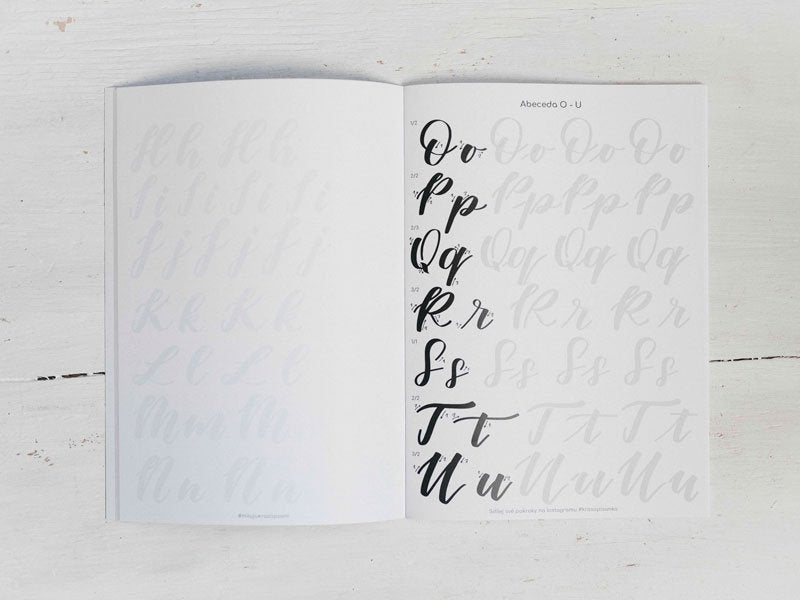 Hh Hh
Ii Ii Ii Ii
Jj Jj Jj
Kk Kk
Ll Ll
Mm M
Nn Nn
Abeceda O - U
1/2 Oo Oo Oo Oo
2/2 Pp Pp Pp Pp
2/3 Qq Qq Qq Qq
3/2 Rr Rr Rr
1/1 Ss Ss Ss Ss
2/2 Tt Tt Tt
3/2 Uu Uu Uu
Sdílej své pokroky na Instagramu